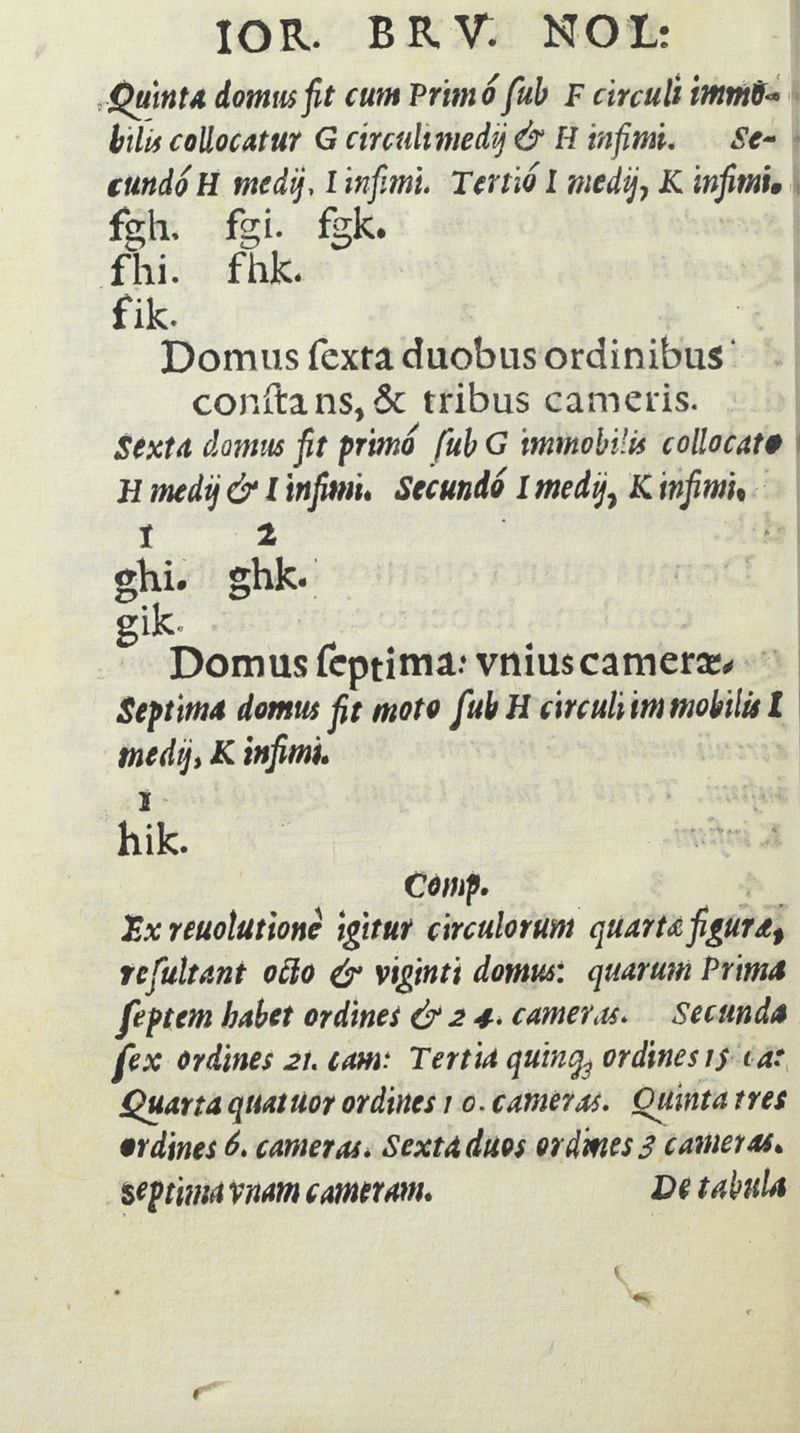 IOR. BRV. NOL:
Quinta domus fit cum Primó ſub F circuli immo-
bilis collocatur G circuli medij & H infimi. Se-
cundó H medij, I infimi. Tertió I medij, K infimi.
fgh. fgi. fgk.
fhi. fhk.
fik.
Domus ſexta duobus ordinibus
conſtans, & tribus cameris.
Sexta domus fit primó ſub G immobilis collocato
H medij & I infimi. Secundó I medij, K infimi,
1 2
ghi. ghk.
gik.
Domus ſeptima: vnius cameræ,
Septima domus fit moto ſub H circuli immobilis I
medij, K infimi.
1
hik.
Comp.
Ex reuolutionè igitur circulorum quartæ figuræ,
reſultant octo & viginti domus: quarum Prima
ſeptem habet ordines & 24. cameras. Secunda
ſex ordines 21. cam: Tertia quinq; ordines 15 ca:
Quarta quatuor ordines 10. cameras. Quinta tres
ordines 6. cameras. Sexta duos ordines 3 cameras.
septima vnam cameram. De tabula